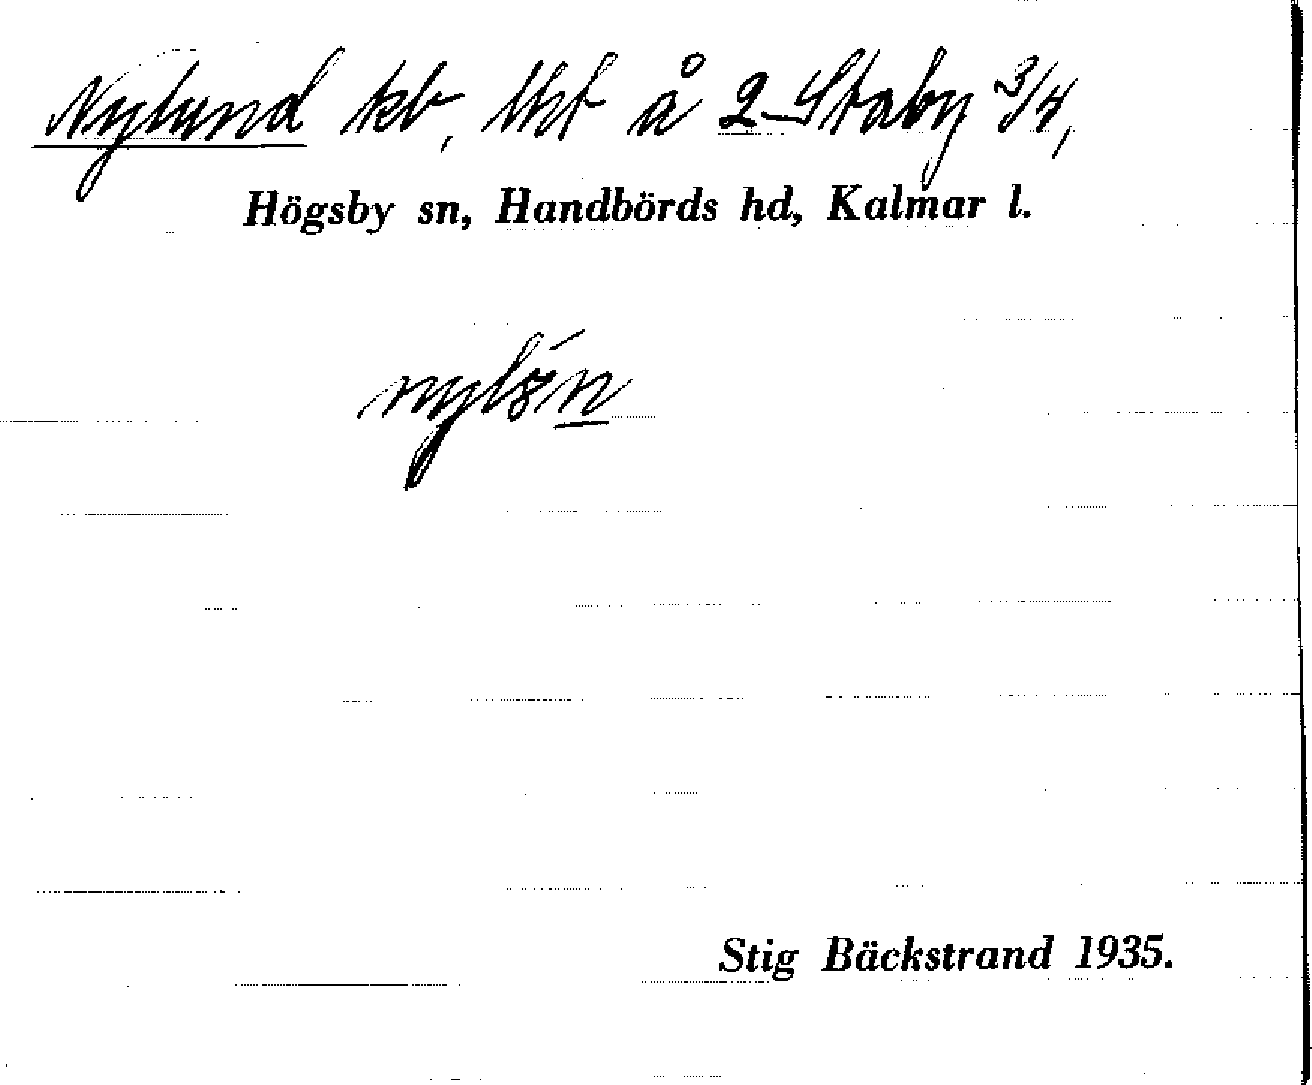 Nylund kb, lht å 2 Staby 3/4,
Högsby sn, Handbörds hd, Kalmar l.
nylón
Stig Bäckstrand 1935.